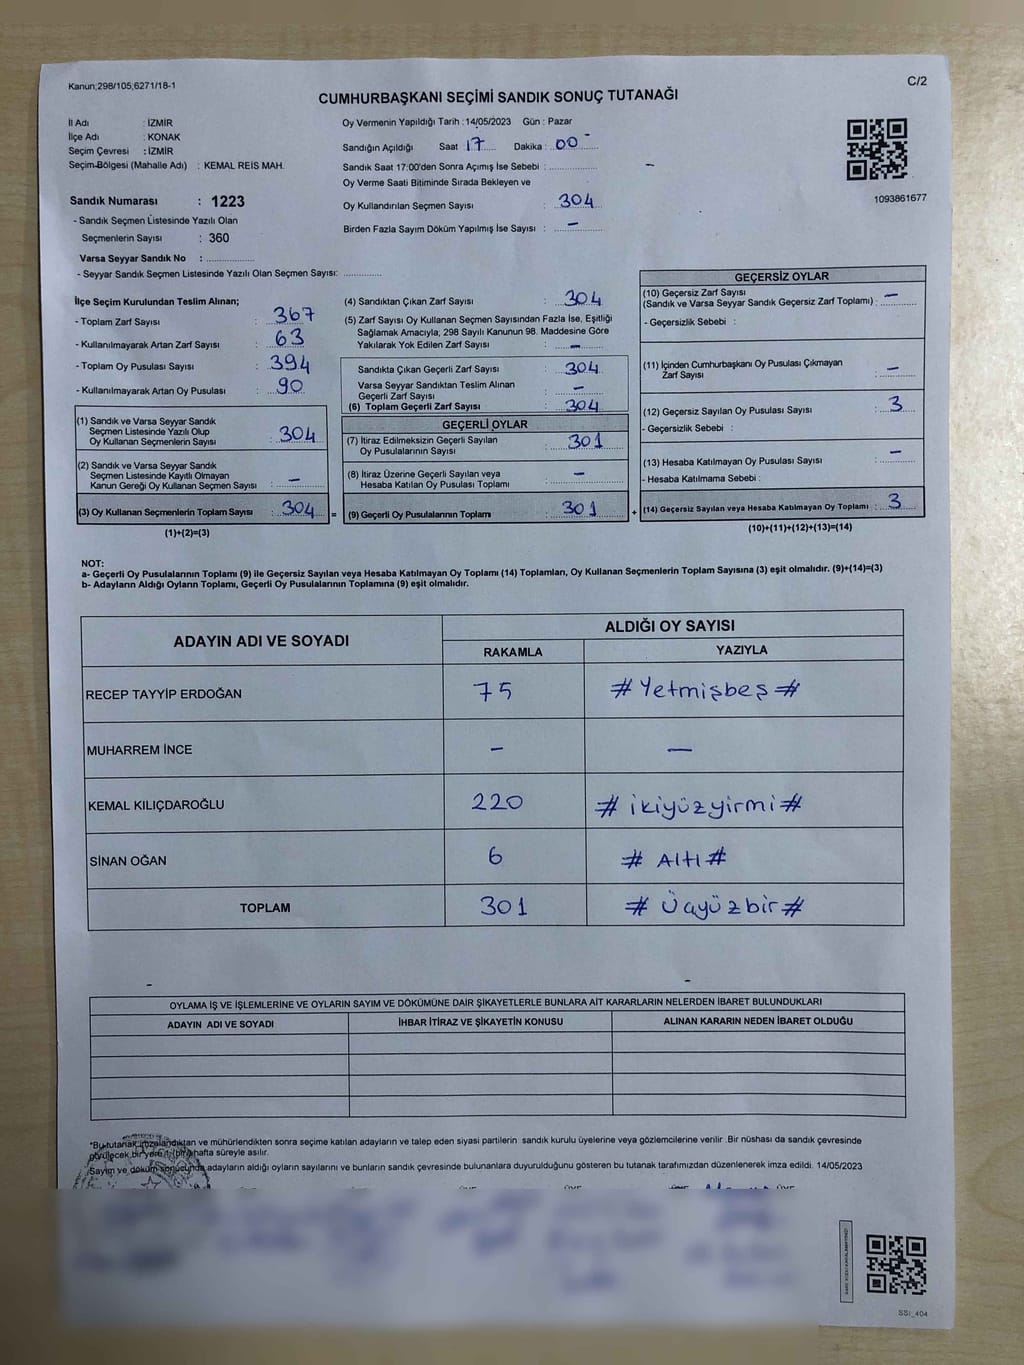 Kanun;298/105;6271/18-1
C/2
CUMHURBAŞKANI SEÇİMİ SANDIK SONUÇ TUTANAĞI
İl Adı : İZMİR
İlçe Adı : KONAK
Seçim Çevresi : İZMİR
Seçim Bölgesi (Mahalle Adı) : KEMAL REİS MAH.
Sandık Numarası : 1223
- Sandık Seçmen Listesinde Yazılı Olan
Seçmenlerin Sayısı : 360
Varsa Seyyar Sandık No : ...............
- Seyyar Sandık Seçmen Listesinde Yazılı Olan Seçmen Sayısı: ............
Oy Vermenin Yapıldığı Tarih :14/05/2023 Gün : Pazar
Sandığın Açıldığı Saat 17 Dakika : 00
Sandık Saat 17:00'den Sonra Açımış İse Sebebi : -
Oy Verme Saati Bitiminde Sırada Bekleyen ve
Oy Kullandırılan Seçmen Sayısı : 304
Birden Fazla Sayım Döküm Yapılmış İse Sayısı : -
1093861677
İlçe Seçim Kurulundan Teslim Alınan;
- Toplam Zarf Sayısı : 367
- Kullanılmayarak Artan Zarf Sayısı : 63
- Toplam Oy Pusulası Sayısı : 394
- Kullanılmayarak Artan Oy Pusulası : 90
(1) Sandık ve Varsa Seyyar Sandık
Seçmen Listesinde Yazılı Olup
Oy Kullanan Seçmenlerin Sayısı : 304
(2) Sandık ve Varsa Seyyar Sandık
Seçmen Listesinde Kayıtlı Olmayan
Kanun Gereği Oy Kullanan Seçmen Sayısı : -
(3) Oy Kullanan Seçmenlerin Toplam Sayısı : 304 =
(1)+(2)=(3)
(4) Sandıktan Çıkan Zarf Sayısı : 304
(5) Zarf Sayısı Oy Kullanan Seçmen Sayısından Fazla İse, Eşitliği
Sağlamak Amacıyla; 298 Sayılı Kanunun 98. Maddesine Göre
Yakılarak Yok Edilen Zarf Sayısı : -
Sandıkta Çıkan Geçerli Zarf Sayısı : 304
Varsa Seyyar Sandıktan Teslim Alınan
Geçerli Zarf Sayısı : -
(6) Toplam Geçerli Zarf Sayısı : 304
GEÇERLİ OYLAR
(7) İtiraz Edilmeksizin Geçerli Sayılan
Oy Pusulalarının Sayısı : 301
(8) İtiraz Üzerine Geçerli Sayılan veya
Hesaba Katılan Oy Pusulası Toplamı : -
(9) Geçerli Oy Pusulalarının Toplamı : 301 +
GEÇERSİZ OYLAR
(10) Geçersiz Zarf Sayısı
(Sandık ve Varsa Seyyar Sandık Geçersiz Zarf Toplamı) : -
- Geçersizlik Sebebi :
(11) İçinden Cumhurbaşkanı Oy Pusulası Çıkmayan
Zarf Sayısı : -
(12) Geçersiz Sayılan Oy Pusulası Sayısı : 3
- Geçersizlik Sebebi :
(13) Hesaba Katılmayan Oy Pusulası Sayısı : -
- Hesaba Katılmama Sebebi :
(14) Geçersiz Sayılan veya Hesaba Katılmayan Oy Toplamı : 3
(10)+(11)+(12)+(13)=(14)
NOT:
a- Geçerli Oy Pusulalarının Toplamı (9) ile Geçersiz Sayılan veya Hesaba Katılmayan Oy Toplamı (14) Toplamları, Oy Kullanan Seçmenlerin Toplam Sayısına (3) eşit olmalıdır. (9)+(14)=(3)
b- Adayların Aldığı Oyların Toplamı, Geçerli Oy Pusulalarının Toplamına (9) eşit olmalıdır.
ADAYIN ADI VE SOYADI ALDIĞI OY SAYISI
RAKAMLA YAZIYLA
RECEP TAYYİP ERDOĞAN 75 # Yetmişbeş #
MUHARREM İNCE - -
KEMAL KILIÇDAROĞLU 220 # ikiyüzyirmi #
SİNAN OĞAN 6 # Altı #
TOPLAM 301 # Üçyüzbir #
OYLAMA İŞ VE İŞLEMLERİNE VE OYLARIN SAYIM VE DÖKÜMÜNE DAİR ŞİKAYETLERLE BUNLARA AİT KARARLARIN NELERDEN İBARET BULUNDUKLARI
ADAYIN ADI VE SOYADI İHBAR İTİRAZ VE ŞİKAYETİN KONUSU ALINAN KARARIN NEDEN İBARET OLDUĞU
*Bu tutanak imzalandıktan ve mühürlendikten sonra seçime katılan adayların ve talep eden siyasi partilerin sandık kurulu üyelerine veya gözlemcilerine verilir .Bir nüshası da sandık çevresinde
görülecek bir yere 1 (bir) hafta süreyle asılır.
Sayım ve döküm sonucunda adayların aldığı oyların sayılarını ve bunların sandık çevresinde bulunanlara duyurulduğunu gösteren bu tutanak tarafımızdan düzenlenerek imza edildi. 14/05/2023
SSI_404